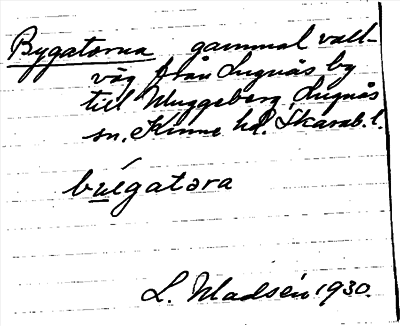 Bygatorna gammal vall-
väg från Lugnås by
till Muggeberg, Lugnås
sn. Kinne hd. Skarab. l.
búegatora
L. Madsén 1930.